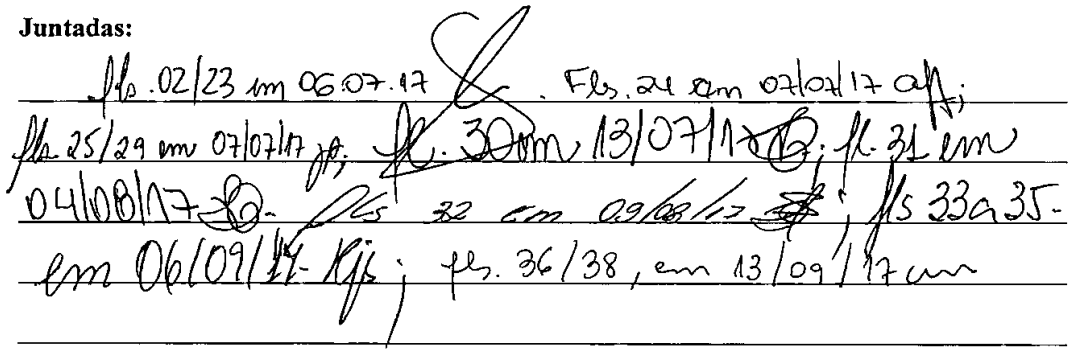 Juntadas:
fls. 02/23 em 06.07.17 . Fls. 24 em 07/07/17
fls 25/29 em 07/07/17 ; fl. 30 em 13/07/17 ; fl. 31 em
04/08/17 - fls 32 em 09/08/17 ; fls 33 a 35-
em 06/09/17- ; fls. 36/38, em 13/09/17